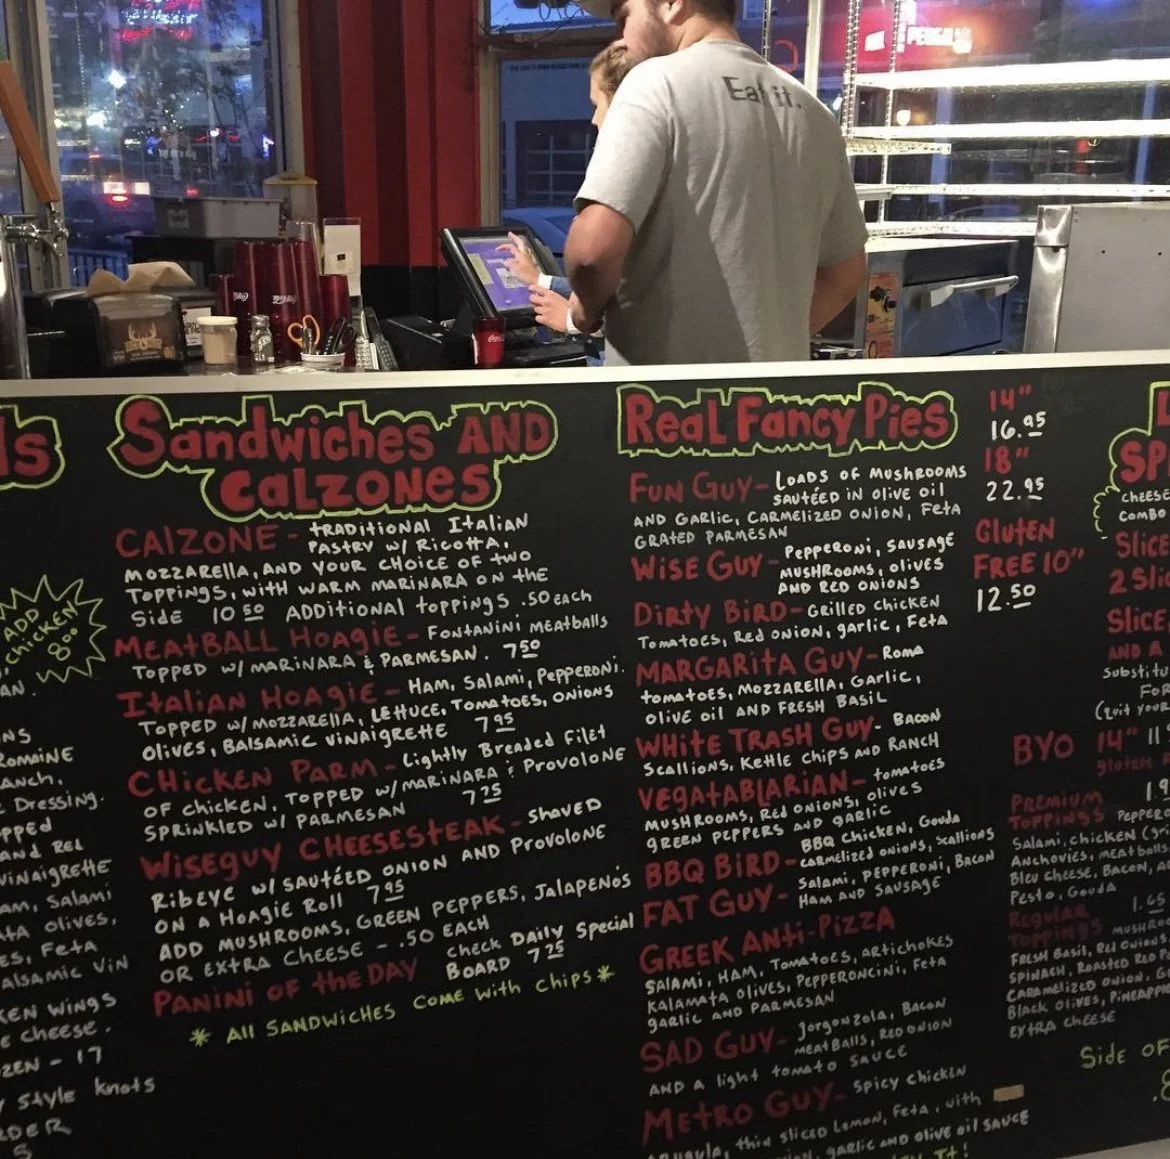 Eat it.
ls
ADD
CHICKEN
8.00
AN.
ROMAINE
RANCH,
DRESSING.
AND RED
VINAIGRETTE
SALAMI
OLIVES,
FETA
BALSAMIC VIN
KEN WINGS
CHEESE.
ZEN - 17
STYLE KNOTS
Sandwiches AND
CALZONES
CALZONE - TRADITIONAL ITALIAN
PASTRY W/ RICOTTA,
MOZZARELLA, AND YOUR CHOICE OF TWO
TOPPINGS, WITH WARM MARINARA ON THE
SIDE 10 50 ADDITIONAL TOPPINGS .50 EACH
MEATBALL HOAGIE - FONTANINI MEATBALLS
TOPPED W/ MARINARA & PARMESAN. 7 50
ITALIAN HOAGIE - HAM, SALAMI, PEPPERONI.
TOPPED W/ MOZZARELLA, LETTUCE, TOMATOES, ONIONS
OLIVES, BALSAMIC VINAIGRETTE 7 95
CHICKEN PARM - LIGHTLY BREADED FILET
OF CHICKEN, TOPPED W/ MARINARA & PROVOLONE
SPRINKLED W/ PARMESAN 7 25
WISEGUY CHEESESTEAK - SHAVED
RIBEYE W/ SAUTÉED ONION AND PROVOLONE
ON A HOAGIE ROLL 7 95
ADD MUSHROOMS, GREEN PEPPERS, JALAPENOS
OR EXTRA CHEESE - .50 EACH
PANINI OF THE DAY CHECK DAILY SPECIAL
BOARD 7 25
* ALL SANDWICHES COME WITH CHIPS *
Real Fancy Pies
14"
16.95
18"
22.95
GLUTEN
FREE 10"
12.50
FUN GUY - LOADS OF MUSHROOMS
SAUTÉED IN OLIVE OIL
AND GARLIC, CARMELIZED ONION, FETA
GRATED PARMESAN
WISE GUY - PEPPERONI, SAUSAGE
MUSHROOMS, OLIVES
AND RED ONIONS
DIRTY BIRD - GRILLED CHICKEN
TOMATOES, RED ONION, GARLIC, FETA
MARGARITA GUY - ROMA
TOMATOES, MOZZARELLA, GARLIC,
OLIVE OIL AND FRESH BASIL
WHITE TRASH GUY - BACON
SCALLIONS, KETTLE CHIPS AND RANCH
VEGATABLARIAN - TOMATOES
MUSHROOMS, RED ONIONS, OLIVES
GREEN PEPPERS AND GARLIC
BBQ BIRD - BBQ CHICKEN, GOUDA
CARMELIZED ONIONS, SCALLIONS
FAT GUY - SALAMI, PEPPERONI, BACON
HAM AND SAUSAGE
GREEK ANTI-PIZZA
SALAMI, HAM, TOMATOES, ARTICHOKES
KALAMATA OLIVES, PEPPERONCINI, FETA
GARLIC AND PARMESAN
SAD GUY - JORGONZOLA, BACON
MEATBALLS, RED ONION
AND A LIGHT TOMATO SAUCE
METRO GUY - SPICY CHICKEN
THIN SLICED LEMON, FETA, WITH
GARLIC AND OLIVE OIL SAUCE
SP
CHEESE
COMBO
SLICE
2 SLI
SLICE
AND A
SUBSTITU
FO
(QUIT YOUR
BYO 14" 11
GLUTEN
PREMIUM 1.9
TOPPINGS PEPPER
SALAMI, CHICKEN
ANCHOVIES, MEATBALLS
BLEU CHEESE, BACON, A
PESTO, GOUDA
REGULAR 1.65
TOPPINGS MUSHRO
FRESH BASIL, RED ONIONS
SPINACH, ROASTED RED P
CARAMELIZED ONION, G
BLACK OLIVES, PINEAPP
EXTRA CHEESE
SIDE OF